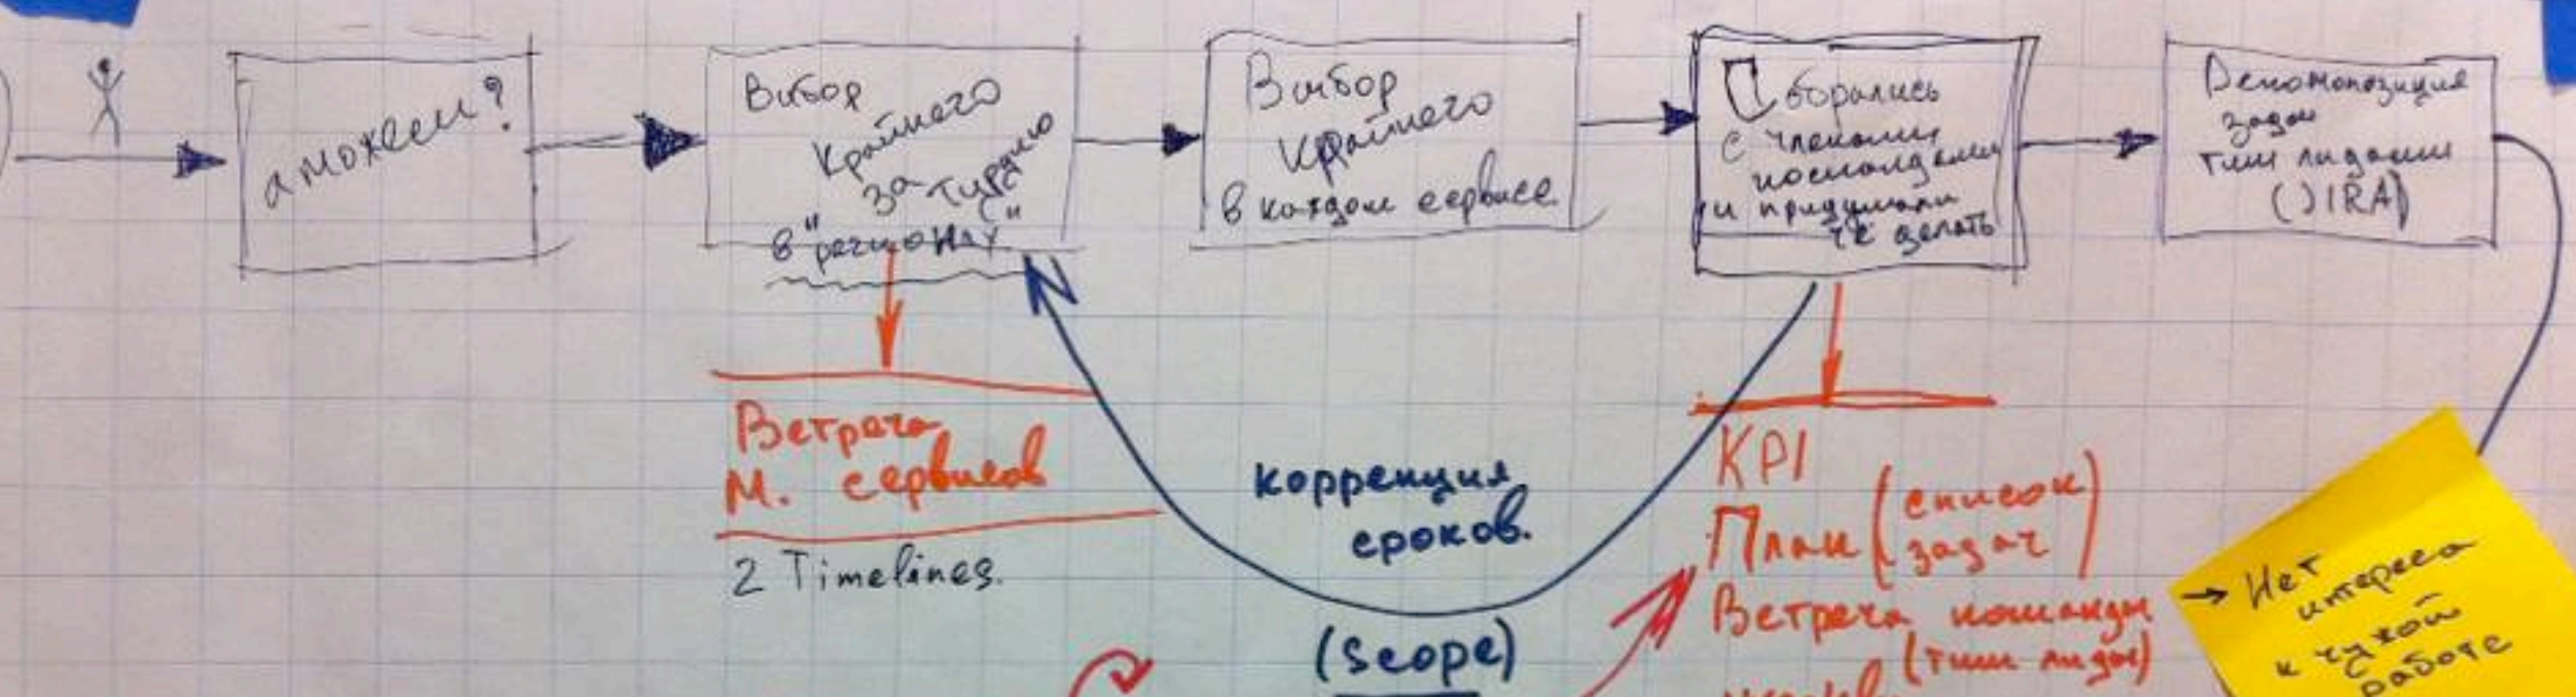 а можем?
Выбор
Крайнего
за Турцию
в "регионах"
Выбор
Крайнего
в каждом сервисе
Собрались
с членами
команды
и придумали
че делать
Декомпозиция
задач
тим лидами
(JIRA)
Встреча
М. сервисов
2 Timelines.
коррекция
сроков.
(Scope)
KPI
План (список
задач)
Встреча команды
(тим лиды)
→ Нет
интереса
к чужой
работе